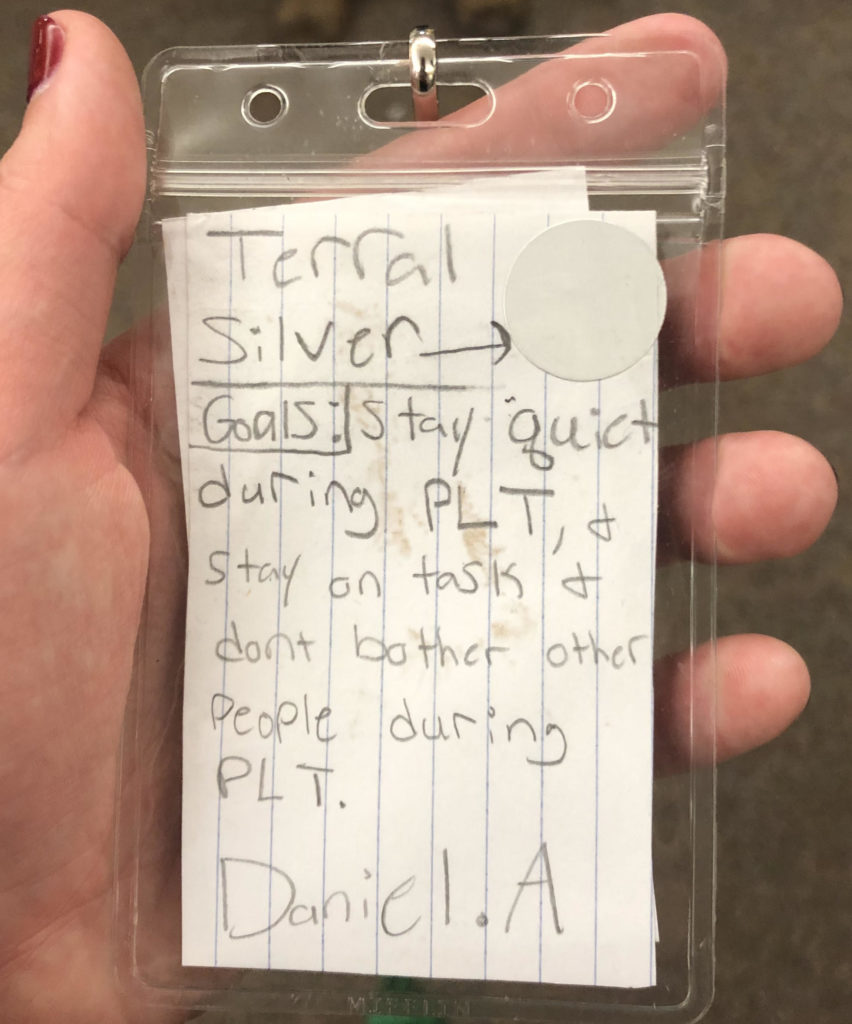 Terral
Silver →
Goals: Stay quiet
during PLT, &
stay on task &
dont bother other
People during
PLT.
Daniel. A
MIFFLIN